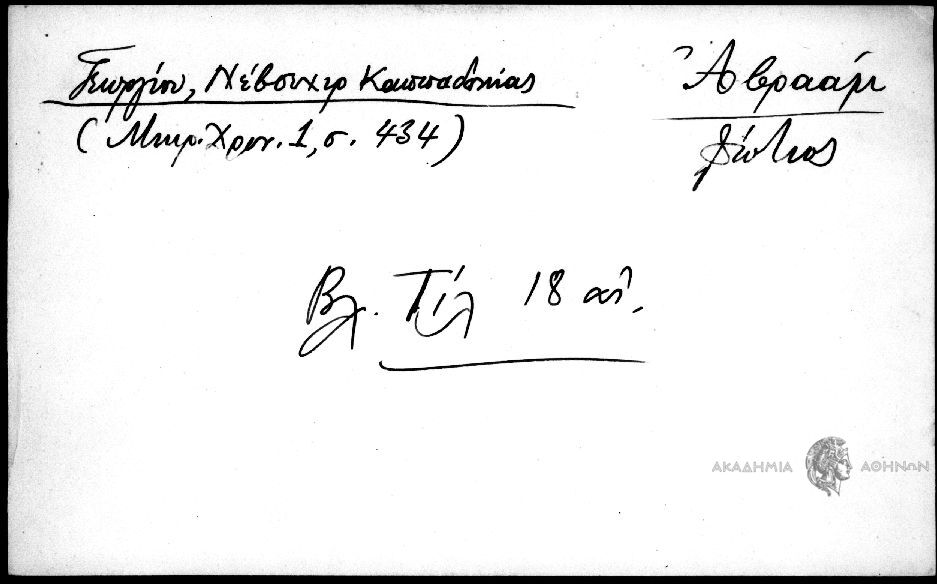 Γεωργίου, Νέβσυχερ Καππαδοκίας
(Μικρ. Χρον. 1, σ. 434)
Ἀβραάμ
Φώτιος
Βλ. 18 αἰ.
ΑΚΑΔΗΜΙΑ ΑΘΗΝΩΝ